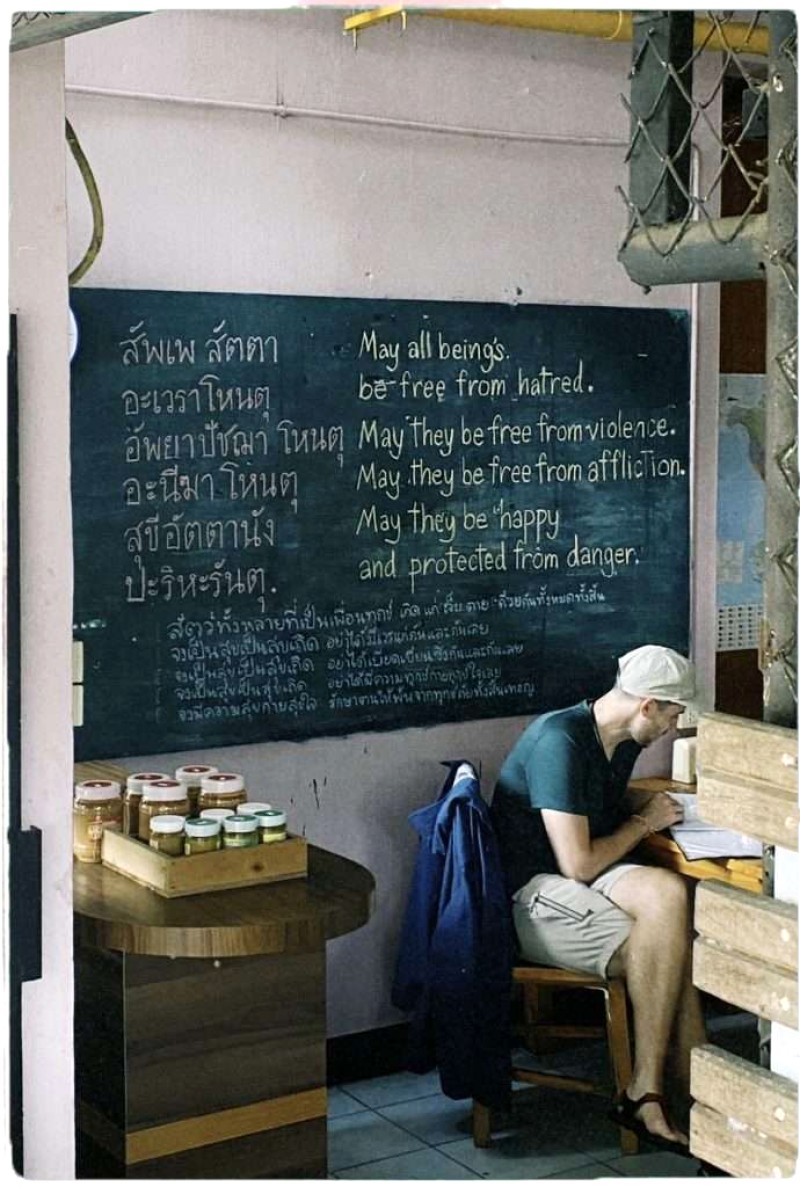 สัพเพ สัตตา
อะเวราโหนตุ
อัพยาปัชฌา โหนตุ
อะนีฆา โหนตุ
สุขีอัตตานัง
ปะริหะรันตุ.
May all beings.
be free from hatred.
May they be free from violence.
May they be free from affliction.
May they be happy
and protected from danger.
สัตว์ทั้งหลายที่เป็นเพื่อนทุกข์ เกิด แก่ เจ็บ ตาย ด้วยกันทั้งหมดทั้งสิ้น
จงเป็นสุขเป็นสุขเถิด อย่าได้มีเวรแก่กันและกันเลย
จงเป็นสุขเป็นสุขเถิด อย่าได้เบียดเบียนซึ่งกันและกันเลย
จงเป็นสุขเป็นสุขเถิด อย่าได้มีความทุกข์กายทุกข์ใจเลย
จงมีความสุขกายสุขใจ รักษาตนให้พ้นจากทุกข์ภัยทั้งสิ้นเทอญ